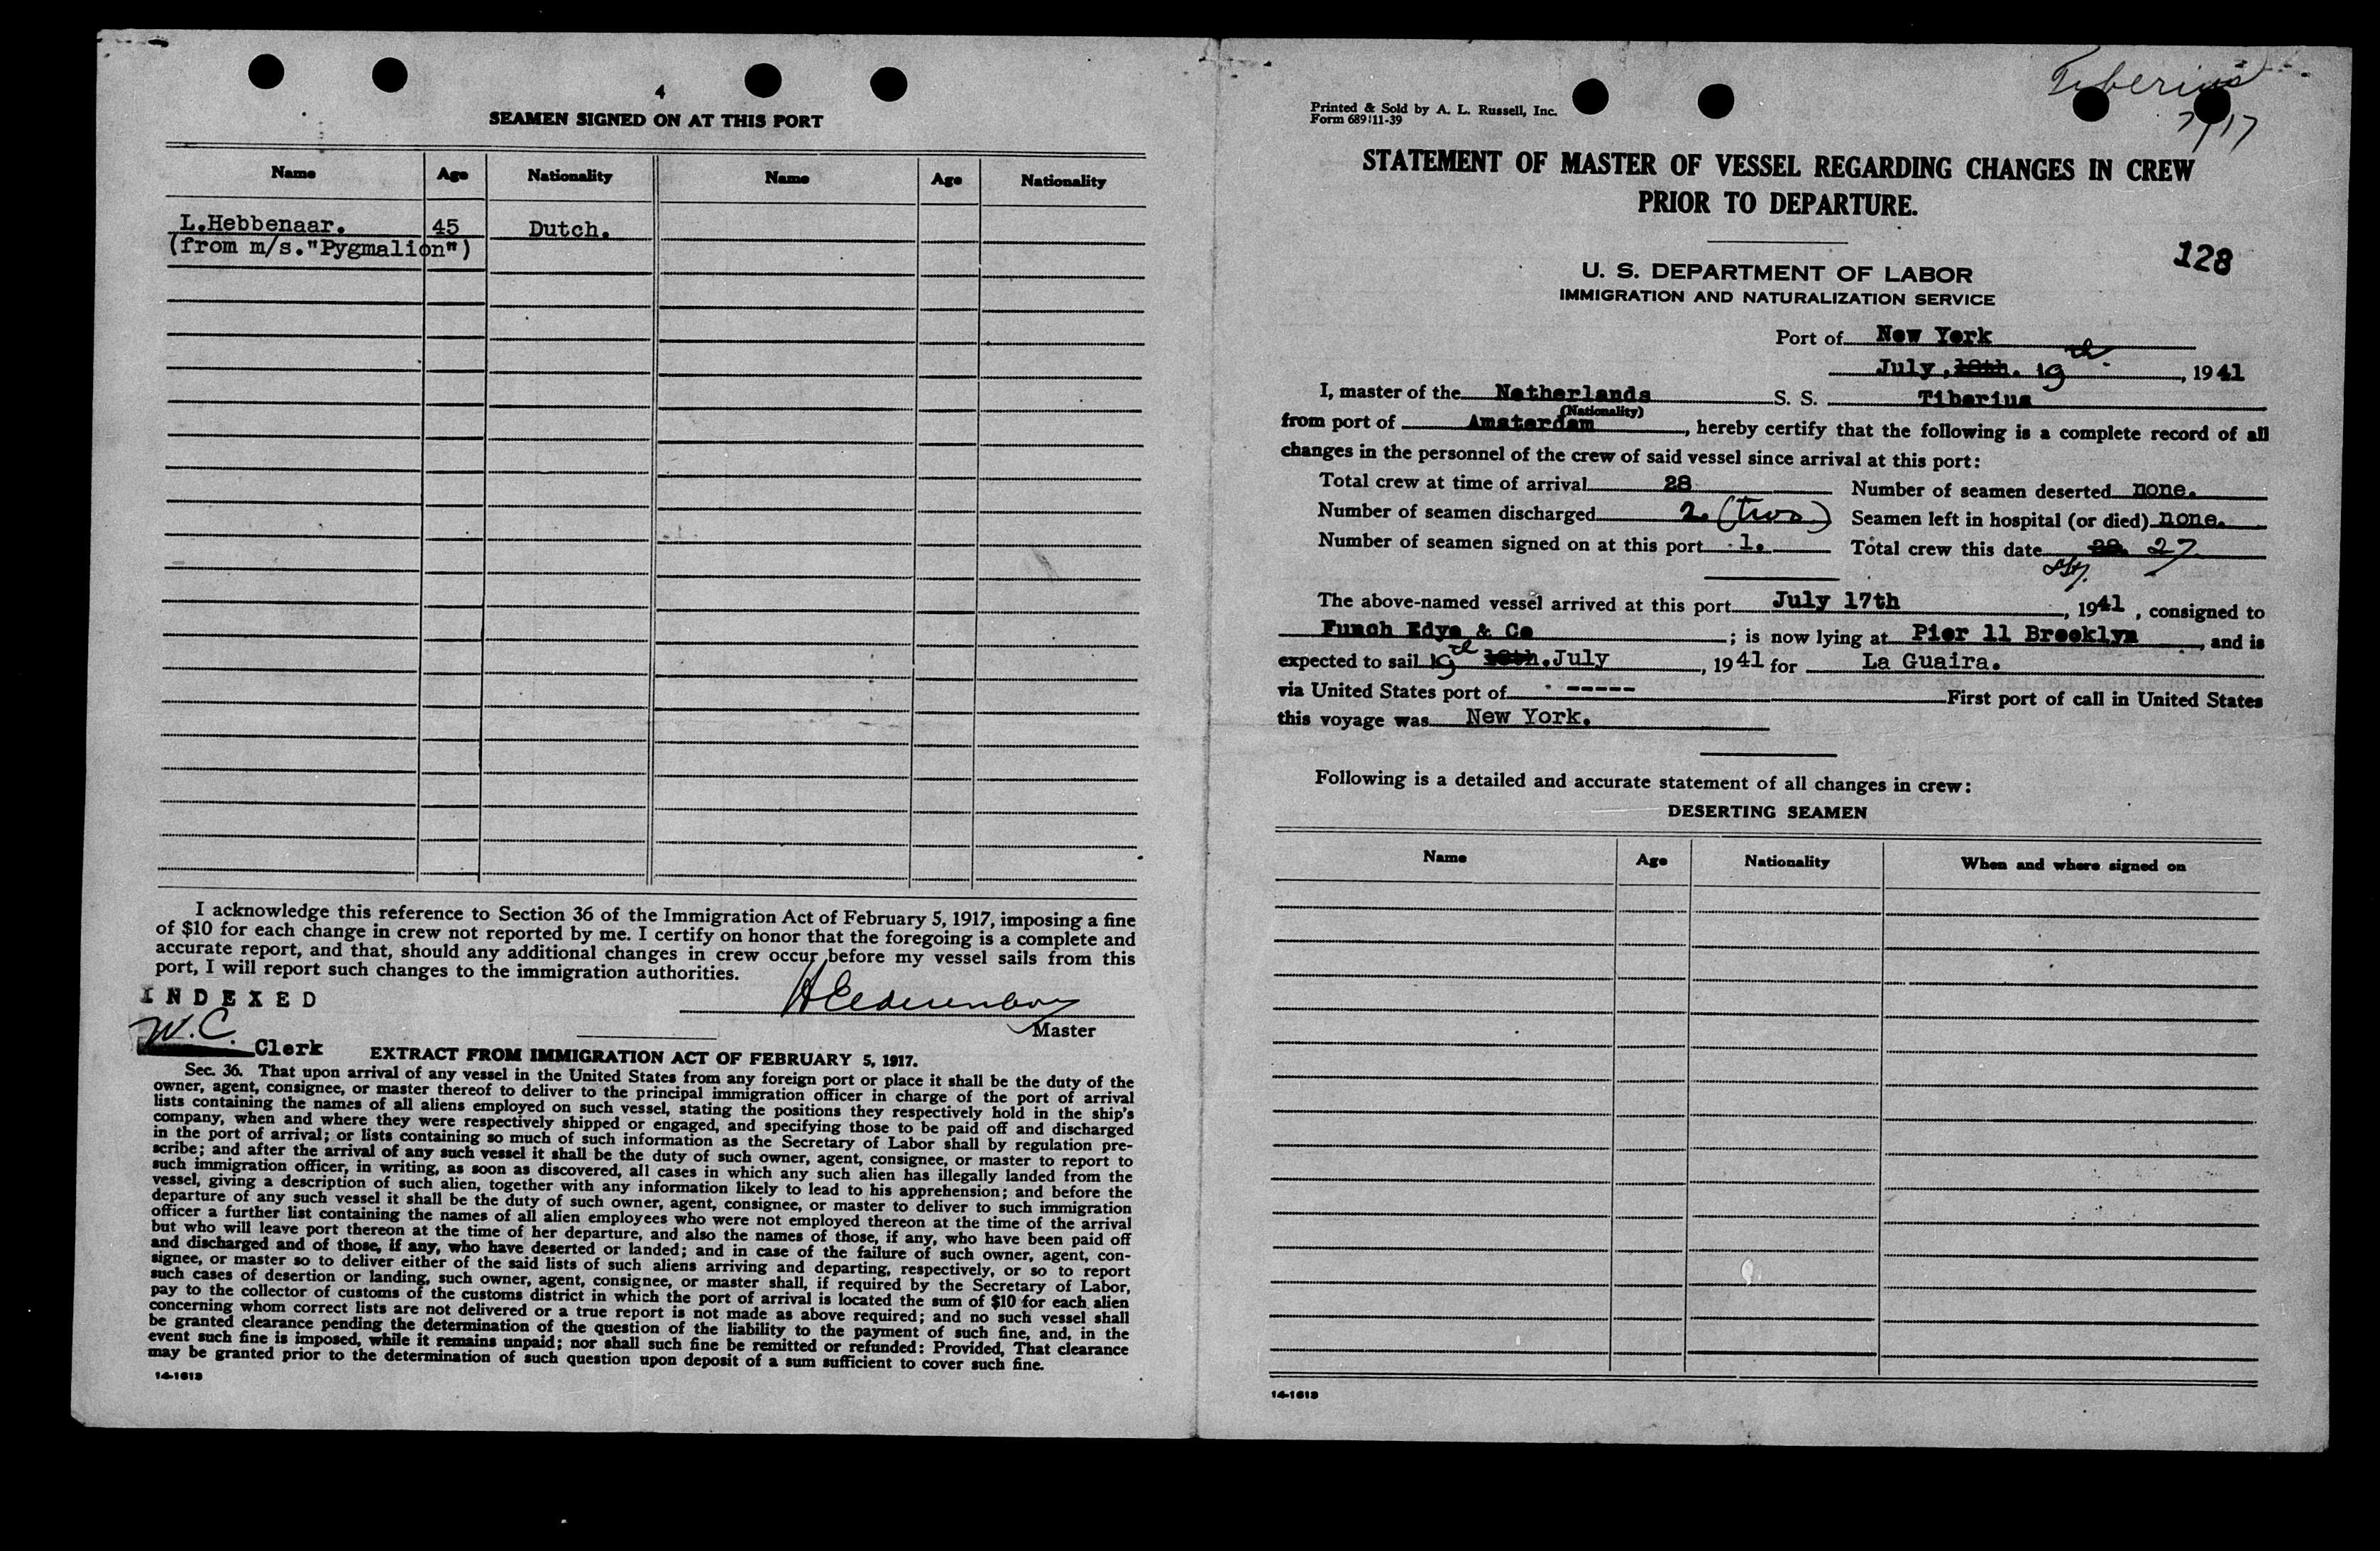 4
SEAMEN SIGNED ON AT THIS PORT
Name Age Nationality Name Age Nationality
L.Hebbenaar. 45 Dutch.
(from m/s."Pygmalion")
I acknowledge this reference to Section 36 of the Immigration Act of February 5, 1917, imposing a fine
of $10 for each change in crew not reported by me. I certify on honor that the foregoing is a complete and
accurate report, and that, should any additional changes in crew occur before my vessel sails from this
port, I will report such changes to the immigration authorities.
INDEXED
Master
W.C. Clerk
EXTRACT FROM IMMIGRATION ACT OF FEBRUARY 5, 1917.
Sec. 36. That upon arrival of any vessel in the United States from any foreign port or place it shall be the duty of the
owner, agent, consignee, or master thereof to deliver to the principal immigration officer in charge of the port of arrival
lists containing the names of all aliens employed on such vessel, stating the positions they respectively hold in the ship's
company, when and where they were respectively shipped or engaged, and specifying those to be paid off and discharged
in the port of arrival; or lists containing so much of such information as the Secretary of Labor shall by regulation pre-
scribe; and after the arrival of any such vessel it shall be the duty of such owner, agent, consignee, or master to report to
such immigration officer, in writing, as soon as discovered, all cases in which any such alien has illegally landed from the
vessel, giving a description of such alien, together with any information likely to lead to his apprehension; and before the
departure of any such vessel it shall be the duty of such owner, agent, consignee, or master to deliver to such immigration
officer a further list containing the names of all alien employees who were not employed thereon at the time of the arrival
but who will leave port thereon at the time of her departure, and also the names of those, if any, who have been paid off
and discharged and of those, if any, who have deserted or landed; and in case of the failure of such owner, agent, con-
signee, or master so to deliver either of the said lists of such aliens arriving and departing, respectively, or so to report
such cases of desertion or landing, such owner, agent, consignee, or master shall, if required by the Secretary of Labor,
pay to the collector of customs of the customs district in which the port of arrival is located the sum of $10 for each alien
concerning whom correct lists are not delivered or a true report is not made as above required; and no such vessel shall
be granted clearance pending the determination of the question of the liability to the payment of such fine, and, in the
event such fine is imposed, while it remains unpaid; nor shall such fine be remitted or refunded: Provided, That clearance
may be granted prior to the determination of such question upon deposit of a sum sufficient to cover such fine.
14-1613
Tiberius
7/17
Printed & Sold by A. L. Russell, Inc.
Form 689 11-39
STATEMENT OF MASTER OF VESSEL REGARDING CHANGES IN CREW
PRIOR TO DEPARTURE.
128
U. S. DEPARTMENT OF LABOR
IMMIGRATION AND NATURALIZATION SERVICE
Port of New York
July, 18th. 19th, 1941
I, master of the Netherlands S. S. Tiberius
(Nationality)
from port of Amsterdam, hereby certify that the following is a complete record of all
changes in the personnel of the crew of said vessel since arrival at this port:
Total crew at time of arrival 28 Number of seamen deserted none.
Number of seamen discharged 2. (two) Seamen left in hospital (or died) none.
Number of seamen signed on at this port 1. Total crew this date 28. 27
The above-named vessel arrived at this port July 17th, 1941, consigned to
Funch Edye & Co; is now lying at Pier 11 Brooklyn, and is
expected to sail 19th 18th.July, 1941 for La Guaira.
via United States port of ----- First port of call in United States
this voyage was New York.
Following is a detailed and accurate statement of all changes in crew:
DESERTING SEAMEN
Name Age Nationality When and where signed on
14-1613